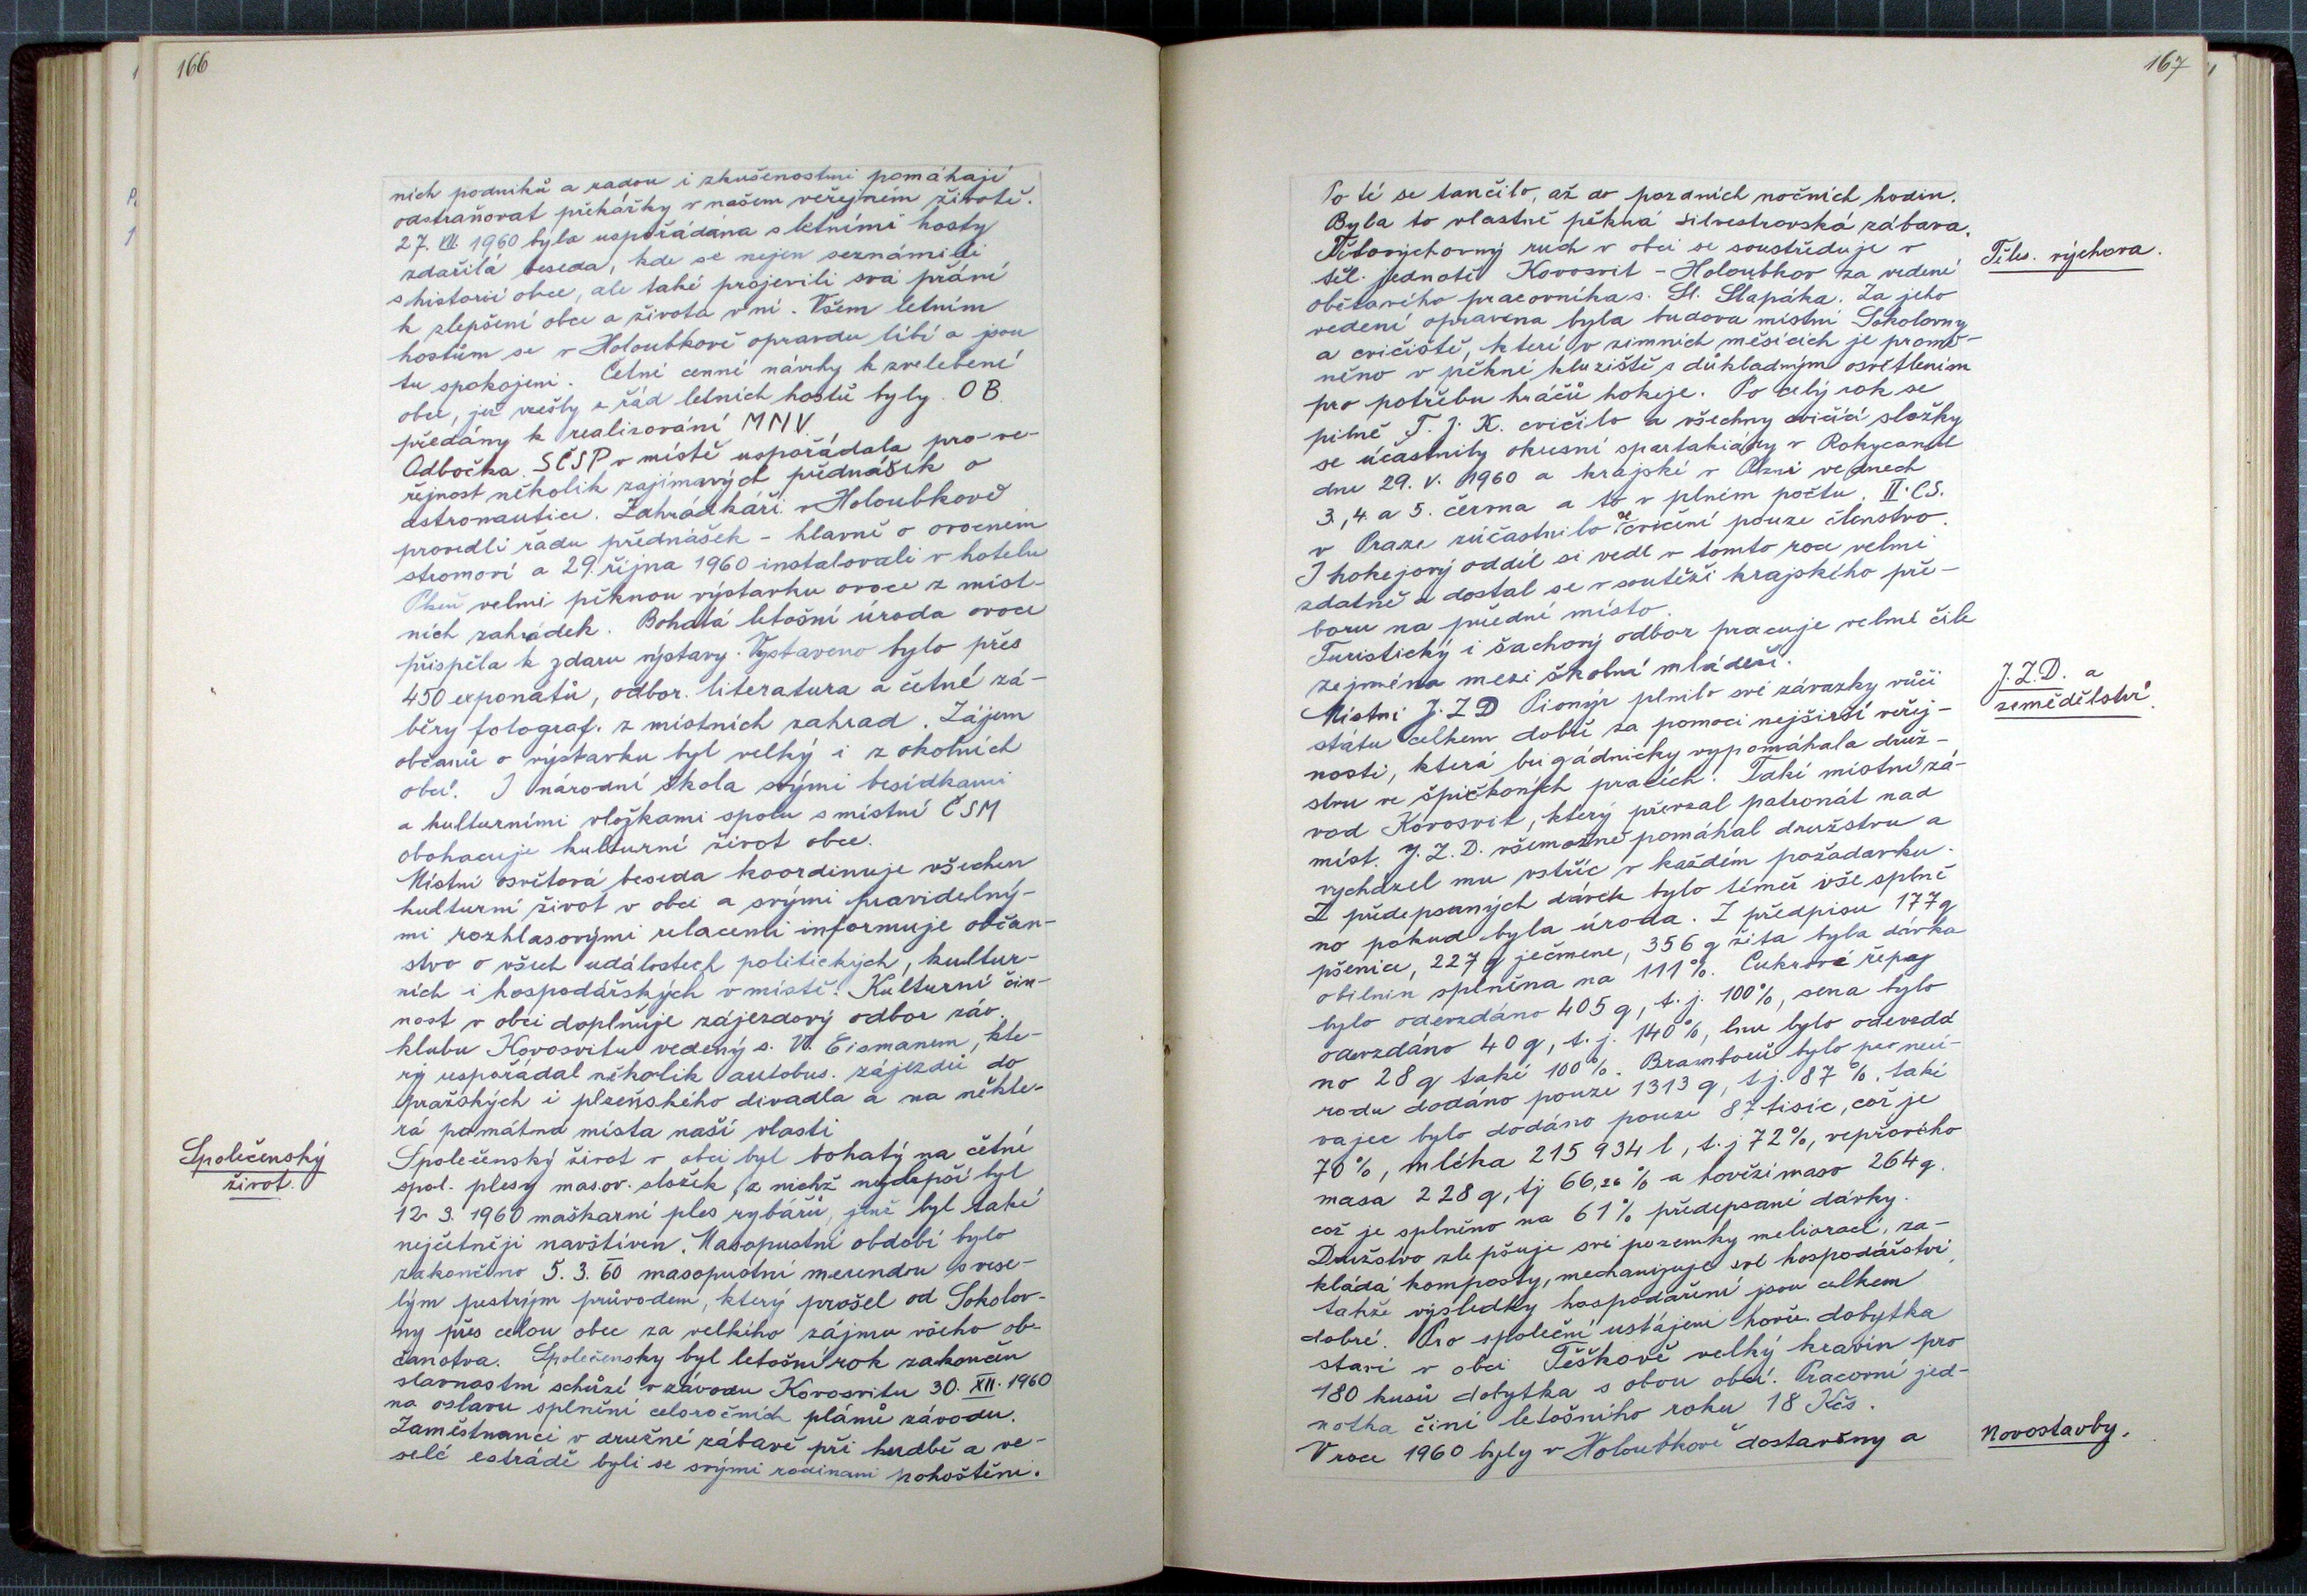 166
ních podniků a radou i zkušenostmi pomáhají
odstraňovat překážky v našem veřejném životě.
27. VII. 1960 byla uspořádána s letními hosty
zdařilá beseda, kde se nejen seznámili
s historií obce, ale také projevili svá přání
k zlepšení obce a života v ní. Všem letním
hostům se v Holoubkově opravdu líbí a jsou
tu spokojeni. Četné cenné návrhy k zvelebení
obce, jež vzešly z řad letních hostů byly O B.
předány k realisování M N V.
Odbočka SČSP v místě uspořádala pro ve-
řejnost několik zajímavých přednášek o
astronautice. Zahrádkáři v Holoubkově
provedli řadu přednášek - hlavně o ovocném
stromoví a 29. října 1960 instalovali v hotelu
Plzeň velmi pěknou výstavku ovoce z míst-
ních zahrádek. Bohatá letošní úroda ovoce
přispěla k zdaru výstavy. Vystaveno bylo přes
450 exponátů, odbor. literatura a četné zá-
běry fotograf. z místních zahrad. Zájem
občanů o výstavku byl velký i z okolních
obcí. I národní škola svými besídkami
a kulturními vložkami spolu s místní ČSM
obohacuje kulturní život obce.
Místní osvětová beseda koordinuje všechen
kulturní život v obci a svými pravidelný-
mi rozhlasovými relacemi informuje občan-
stvo o všech událostech politických, kultur-
ních i hospodářských v místě. Kulturní čin-
nost v obci doplňuje zájezdový odbor záv.
klubu Kovosvitu vedený s. Vl. Eismanem, kte-
rý uspořádal několik autobus. zájezdů do
pražských i plzeňského divadla a na někte-
rá památná místa naší vlasti
Společenský
život.
Společenský život v obci byl bohatý na četné
spol. plesy mas.ov. složek, z nichž nejlepší byl
12. 3. 1960 maškarní ples rybářů, jenž byl také
nejčetněji navštíven. Masopustní období bylo
zakončeno 5. 3. 60 masopustní merendou s vese-
lým pestrým průvodem, který prošel od Sokolov-
ny přes celou obec za velkého zájmu všeho ob-
čanstva. Společensky byl letošní rok zakončen
slavnostní schůzí v závodu Kovosvitu 30. XII. 1960
na oslavu splnění celoročních plánů závodu.
Zaměstnanci v družné zábavě při hudbě a ve-
selé estrádě byli se svými rodinami pohoštěni.
167
Po té se tančilo, až do pozdních nočních hodin.
Byla to vlastně pěkná silvestrovská zábava.
Těles. výchova.
Tělovýchovný ruch v obci se soustřeďuje v
těl. jednotě Kovosvit - Holoubkov za vedení
obětavého pracovníka s. Sl. Slapáka. Za jeho
vedení opravena byla budova místní Sokolovny
a cvičiště, které v zimních měsících je promě-
něno v pěkné kluziště s důkladným osvětlením
pro potřebu hráčů hokeje. Po celý rok se
pilně T. J. K. cvičilo a všechny cvičící složky
se účastnily okresní spartakiády v Rokycanech
dne 29. V. 1960 a krajské v Plzni ve dnech
3., 4. a 5. června a to v plném počtu. II. CS.
v Praze zúčastnilo se cvičení pouze členstvo.
I hokejový oddíl si vedl v tomto roce velmi
zdatně a dostal se v soutěži krajského pře-
boru na přední místo.
Turistický i šachový odbor pracuje velmi čile
zejména mezi školní mládeží.
J. Z. D. a
zemědělství.
Místní J. Z D Pionýr plnilo své závazky vůči
státu celkem dobře za pomoci nejširší veřej-
nosti, která brigádnicky vypomáhala druž-
stvu ve špičkových pracích. Také místní zá-
vod Kovosvit, který převzal patronát nad
míst. J. Z. D. všemožně pomáhal družstvu a
vycházel mu vstříc v každém požadavku.
Z předepsaných dávek bylo téměř vše splně-
no pokud byla úroda. Z předpisu 177 q
pšenice, 227 q ječmene, 356 q žita byla dávka
obilnin splněna na 111%. Cukrové řepy
bylo odevzdáno 405 q, t. j. 100%, sena bylo
odevzdáno 40 q, t. j. 140%, lnu bylo odevzdá
no 28 q také 100%. Bramborů bylo pro neú-
rodu dodáno pouze 1313 q, t j. 87%. také
vajec bylo dodáno pouze 87 tisíc, což je
70%, mléka 215 934 l, t. j 72%, vepřového
masa 228 q, tj 66,26% a hovězí maso 264 q.
což je splněno na 61% předepsané dávky.
Družstvo zlepšuje své pozemky meliorací, za-
kládá komposty, mechanizuje své hospodářství,
takže výsledky hospodaření jsou celkem
dobré. Pro společné ustájení hověz. dobytka
staví v obci Těškově velký kravín pro
180 kusů dobytka s obou obcí. Pracovní jed-
notka činí letošního roku 18 Kčs.
Novostavby.
V roce 1960 byly v Holoubkově dostavěny a